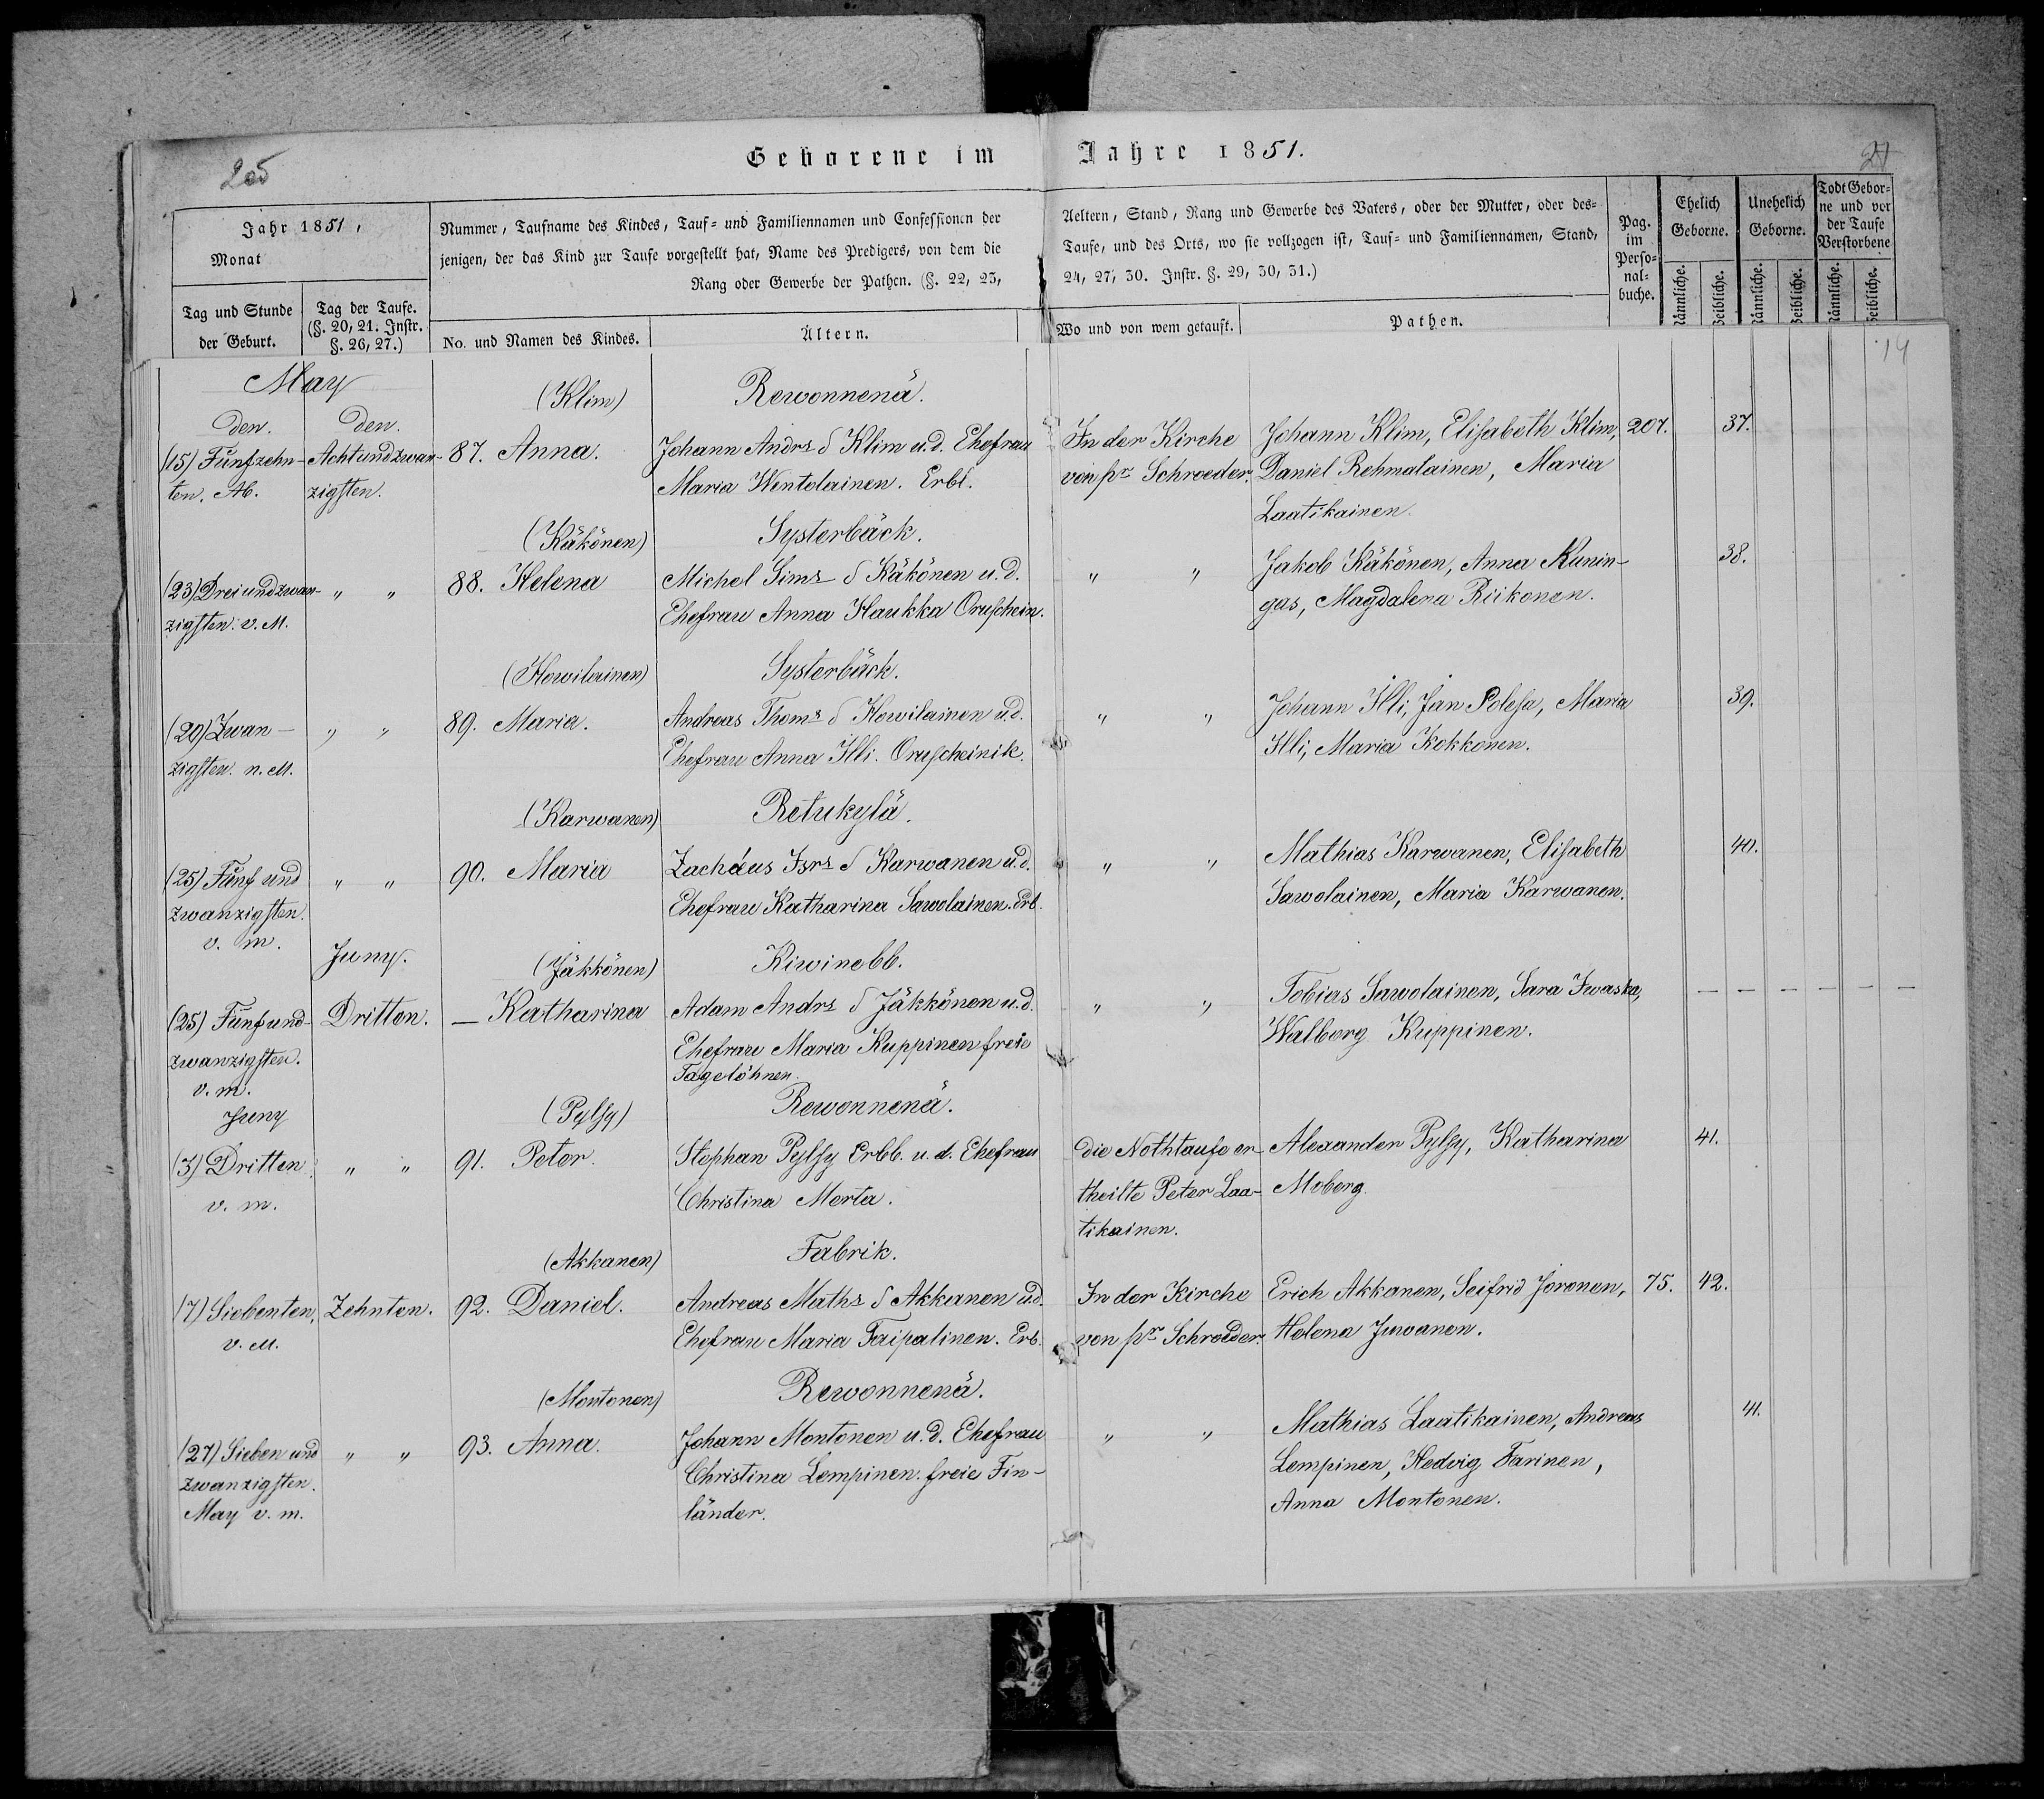 25
Geborene im Jahre 1851.
Jahr 1851,
Monat
Tag und Stunde
der Geburt.
Tag der Taufe.
(§. 20, 21. Instr.
§. 26, 27.)
Nummer, Taufname des Kindes, Tauf- und Familiennamen und Confessionen der
jenigen, der das Kind zur Taufe vorgestellt hat, Name des Predigers, von dem die
Rang oder Gewerbe der Pathen. (§. 22, 23,
No. und Namen des Kindes.
Ältern.
Aeltern, Stand, Rang und Gewerbe des Vaters, oder der Mutter, oder des-
Taufe, und des Orts, wo sie vollzogen ist, Tauf- und Familiennamen, Stand,
24, 27, 30. Instr. §. 29, 30, 31.)
Wo und von wem getauft.
Pathen.
Pag.
im
Perso-
nal-
buche.
Ehelich
Geborne.
Unehelich
Geborne.
Todt Gebor-
ne und vor
der Taufe
Verstorbene
Männliche.
Weibliche.
Männliche.
Weibliche.
Männliche.
Weibliche.
14
May
(Klim)
Rewonnenä.
den. den.
(15) Fünfzehn- Achtundzwan- 87. Anna. Johann Andrs S Klim u. d. Ehefrau In der Kirche Johann Klim, Elisabeth Klim, 207. 37.
ten. Ab. zigsten. Maria Wentolainen. Erbl. von pr Schroeder. Daniel Rehmalainen, Maria
Laatikainen.
(Käkönen) Systerbäck.
(23) Drei und zwan- " " 88. Helena Michel Sims S Käkönen u. d. " " Jakob Käkönen, Anna Kunin- 38.
zigsten. v. M. Ehefrau Anna Haukka Oruschein. gas, Magdalena Riikonen.
(Howilainen) Systerbäck.
(20) Zwan- " " 89. Maria. Andreas Thoms S Howilainen u. d. " " Johann Illi, Jan Polesa, Maria 39.
zigsten. n. M. Ehefrau Anna Illi. Oruscheinik. Illi, Maria Kokkonen.
(Karwanen) Retukylä.
(25) Fünf und " " 90. Maria Zachäus Isrs S Karwanen u. d. " " Mathias Karwanen, Elisabeth 40.
zwanzigsten. Ehefrau Katharina Sawolainen. Erb. Sawolainen, Maria Karwanen.
v. m. Juny. (Jäkkönen) Kiwinebb.
(25) Fünf und- Dritten. — Katharina Adam Andrs S Jäkkönen u. d. " " Tobias Sawolainen, Sara Iwaska, — — — — — —
zwanzigsten. Ehefrau Maria Kuppinen freie Walborg Kuppinen.
v. m. Tagelöhner.
Juny (Pylsy) Rewonnenä.
(3) Dritten " " 91. Peter. Stephan Pylsy Erbb. u. d. Ehefrau die Nothtaufe er- Alexander Pylsy, Katharina 41.
v. m. Christina Merta. theilte Peter Laa- Moberg.
tikainen.
(Akkanen) Fabrik.
(7) Siebenten, Zehnten. 92. Daniel. Andreas Maths S Akkanen u. d. In der Kirche Erich Akkanen, Seifrid Joronen, 75. 42.
v. M. Ehefrau Maria Taipalinen. Erb. von pr Schroeder. Helena Juwanen.
(Montonen) Rewonnenä.
(27) Sieben und " " 93. Anna. Johann Montonen u. d. Ehefrau " " Mathias Laatikainen, Andreas 41.
zwanzigsten. Christina Lempinen. freie Fin- Lempinen, Hedvig Tarinen,
May v. m. länder. Anna Montonen.